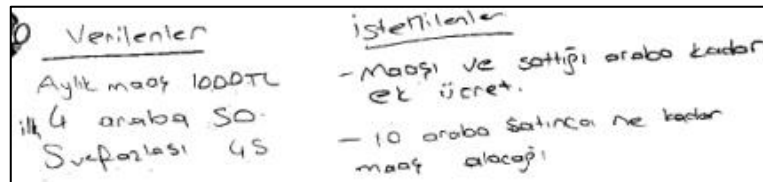 Verilenler
Aylık maaş 1000TL
ilk 4 araba 50.
5 vefazlası 45
İstenilenler
- Maaşı ve sattığı araba kadar
ek ücret.
- 10 araba satınca ne kadar
maaş alacağı